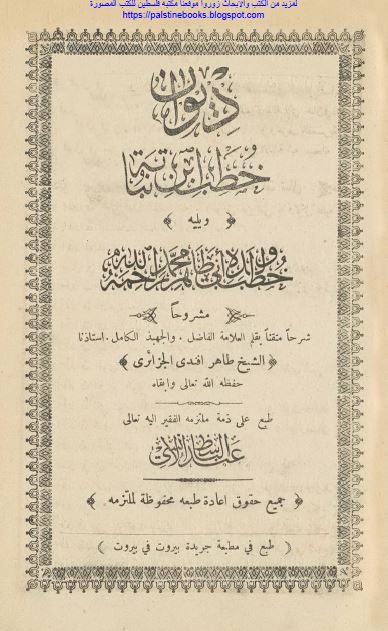 لمزيد من الكتب والأبحاث زوروا موقعنا مكتبة فلسطين للكتب المصورة
https://palstinebooks.blogspot.com
ديوان
خطب ابن نباتة
﴿ ويليه ﴾
خطب ولده أبي طاهر محمد رحمه الله
مشروحاً
شرحاً متقناً بقلم العلامة الفاضل . والجهبذ الكامل . استاذنا
﴿ الشيخ طاهر افندي الجزائري ﴾
حفظه الله تعالى وابقاه
طبع على ذمة ملتزمه الفقير اليه تعالى
عبد الباسط الانسي
﴿ جميع حقوق اعادة طبعه محفوظة لملتزمه ﴾
( طبع في مطبعة جريدة بيروت في بيروت )